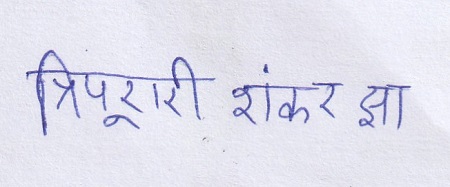 त्रिपूरारी शंकर झा